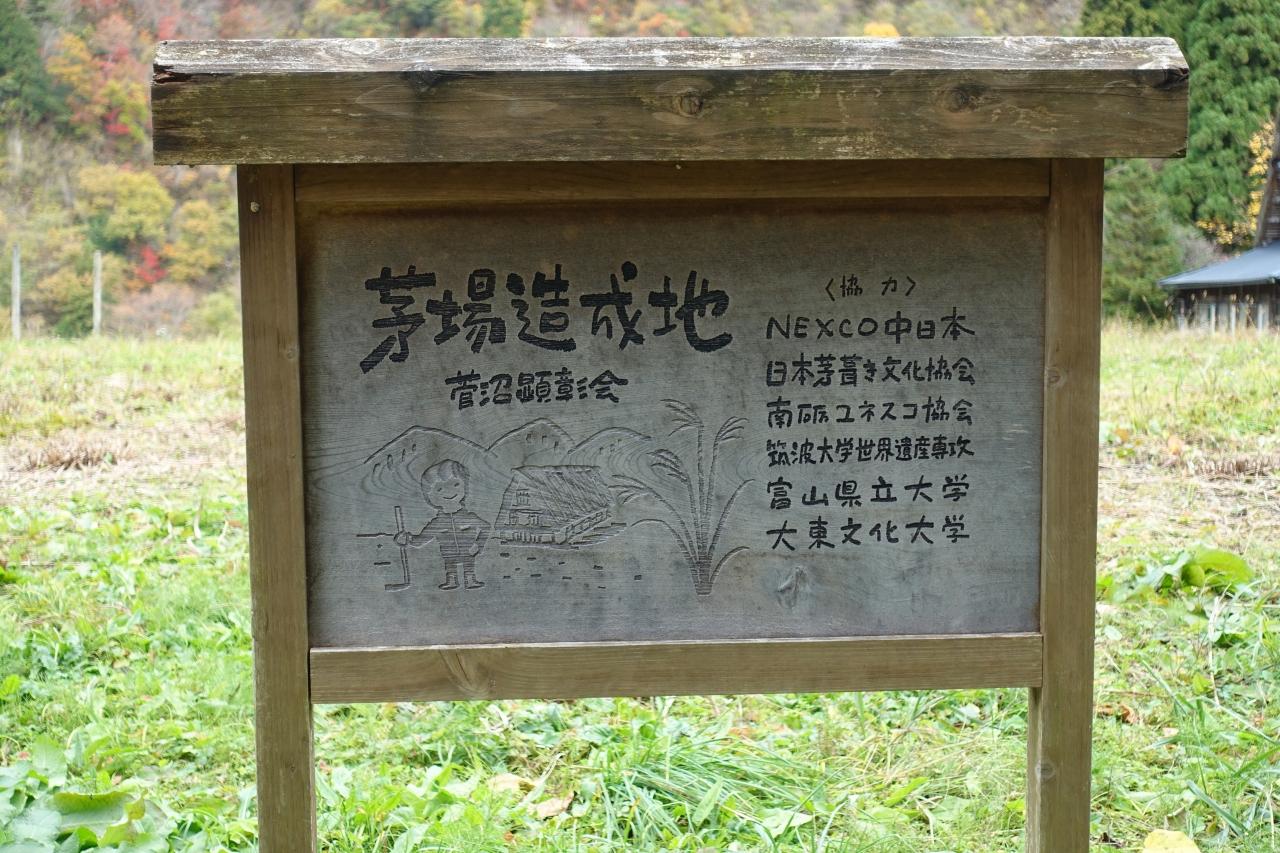 茅場造成地
菅沼顕彰会
〈協力〉
NEXCO中日本
日本茅葺き文化協会
南砺ユネスコ協会
筑波大学世界遺産専攻
富山県立大学
大東文化大学